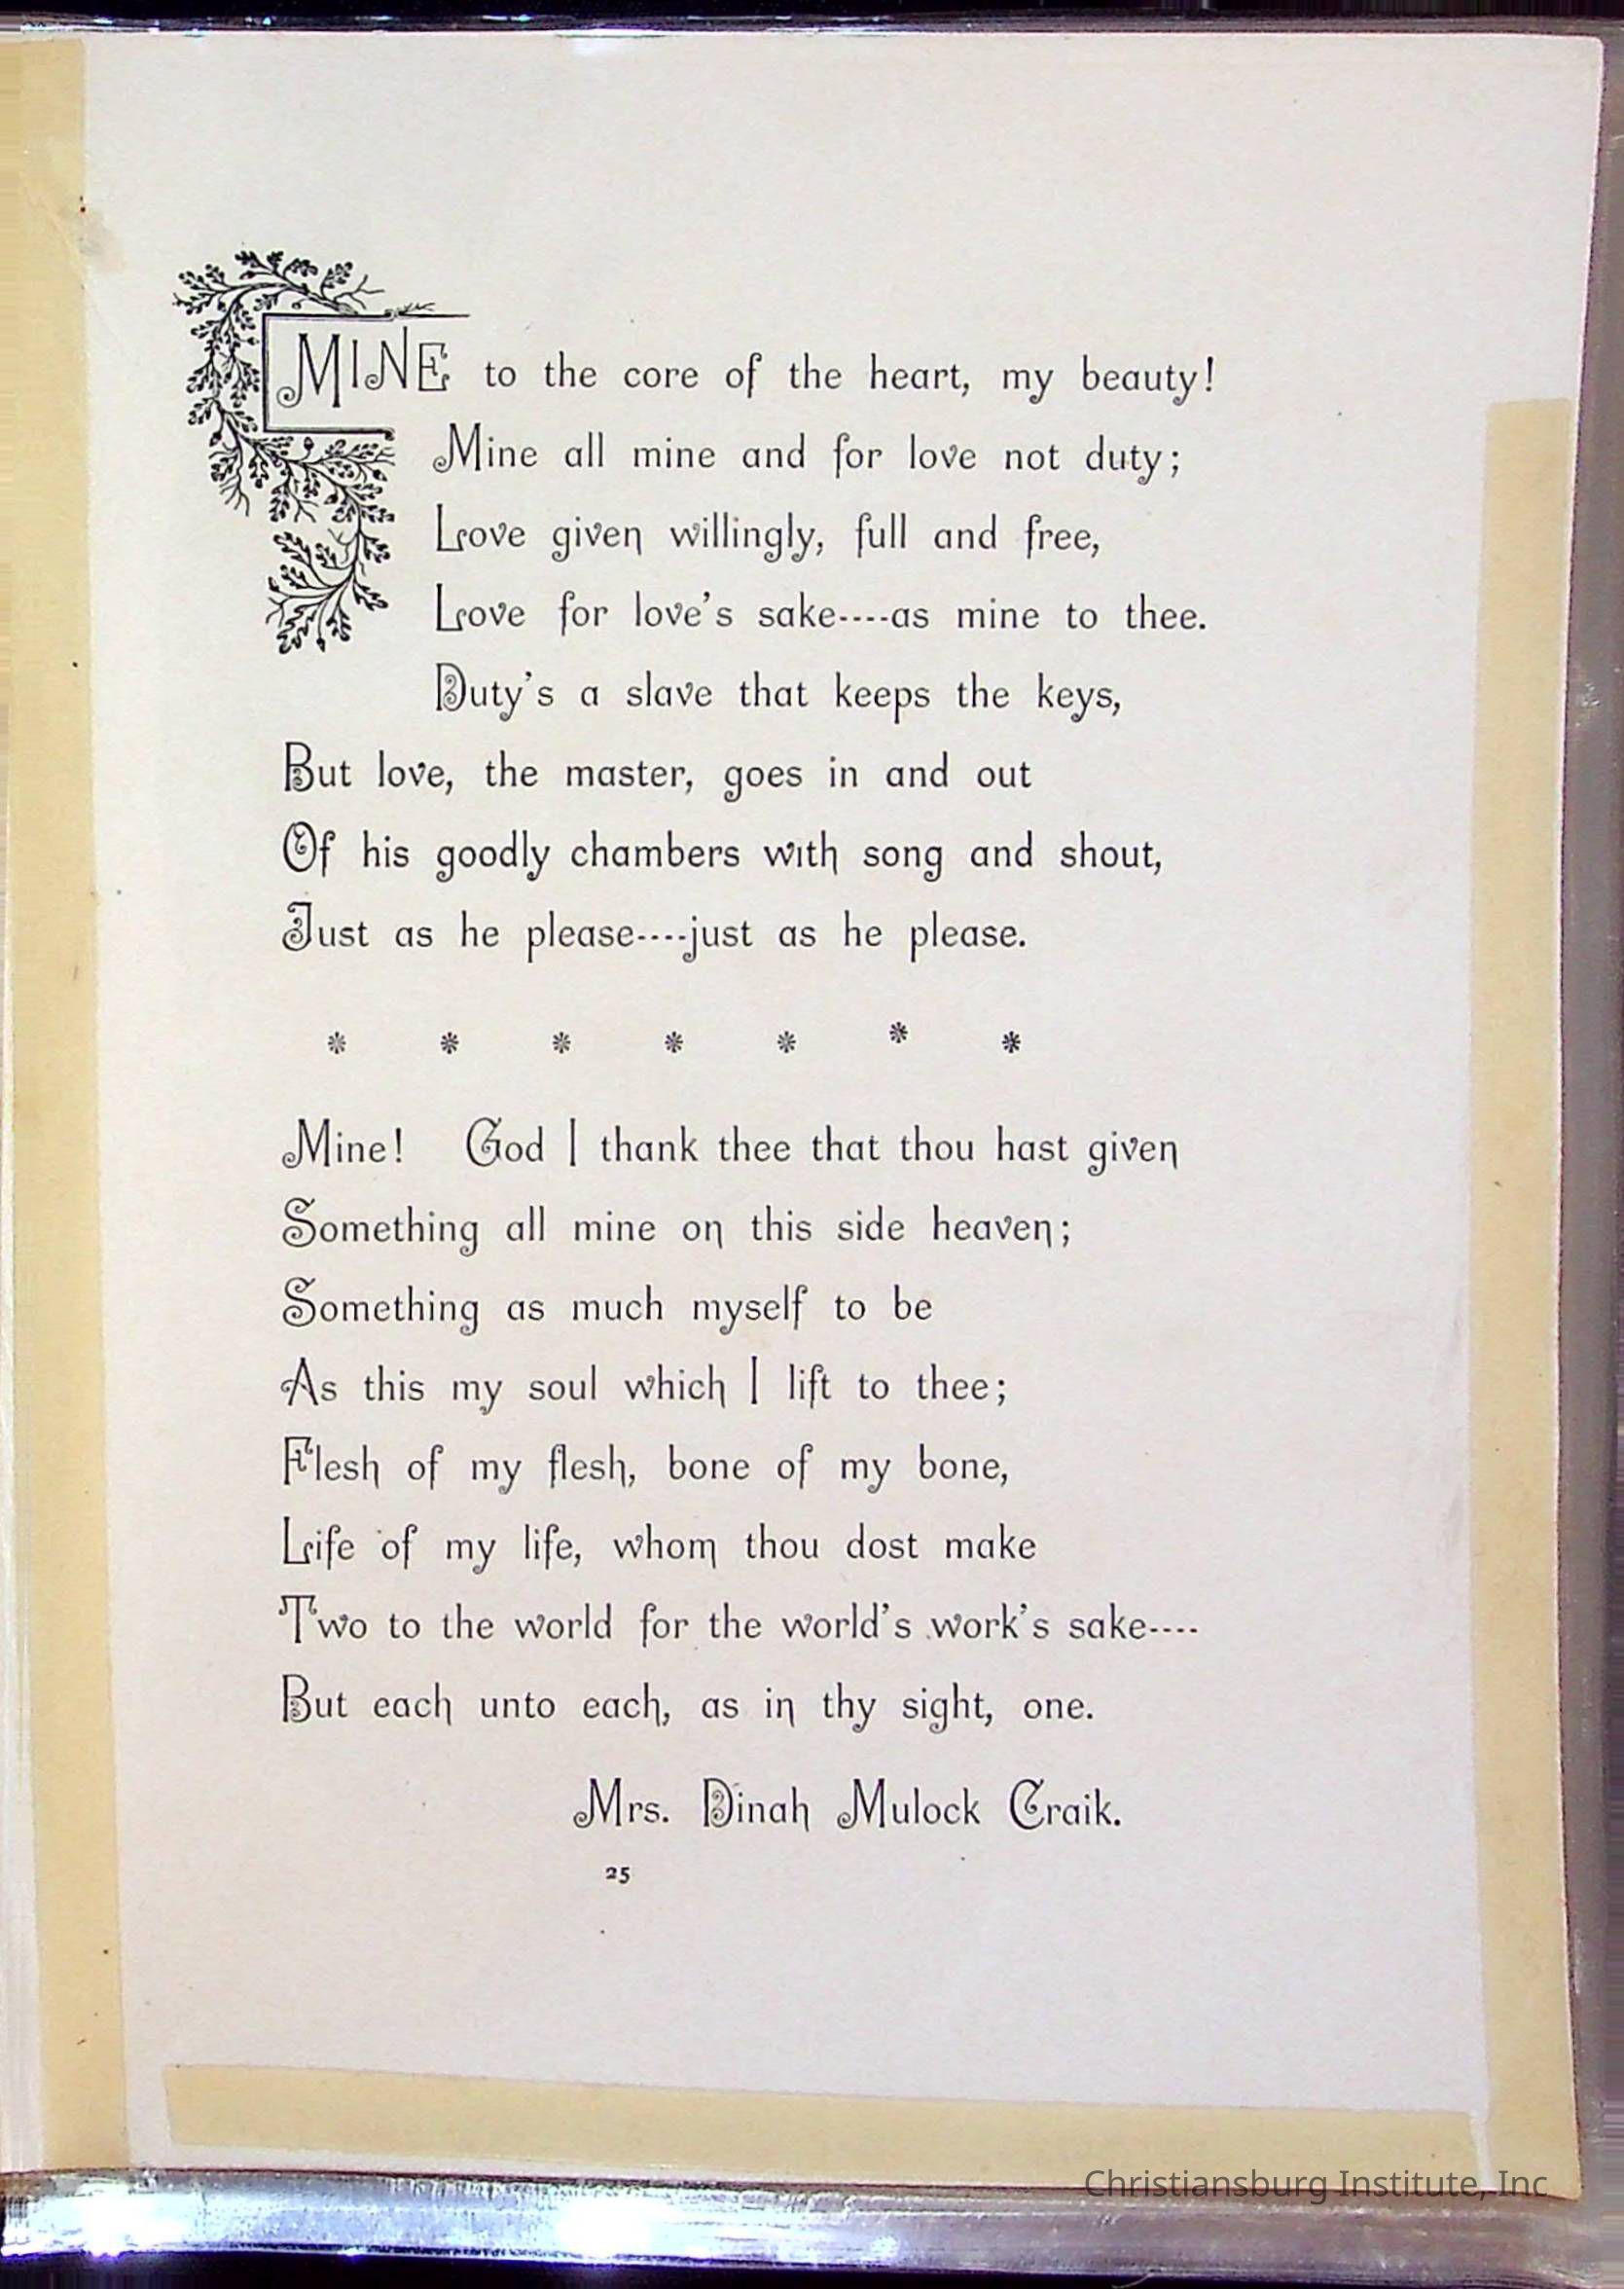 MINE to the core of the heart, my beauty!
Mine all mine and for love not duty;
Love given willingly, full and free,
Love for love's sake----as mine to thee.
Duty's a slave that keeps the keys,
But love, the master, goes in and out
Of his goodly chambers with song and shout,
Just as he please----just as he please.
* * * * * * *
Mine! God I thank thee that thou hast given
Something all mine on this side heaven;
Something as much myself to be
As this my soul which I lift to thee;
Flesh of my flesh, bone of my bone,
Life of my life, whom thou dost make
Two to the world for the world's work's sake----
But each unto each, as in thy sight, one.
Mrs. Dinah Mulock Craik.
25
Christiansburg Institute, Inc